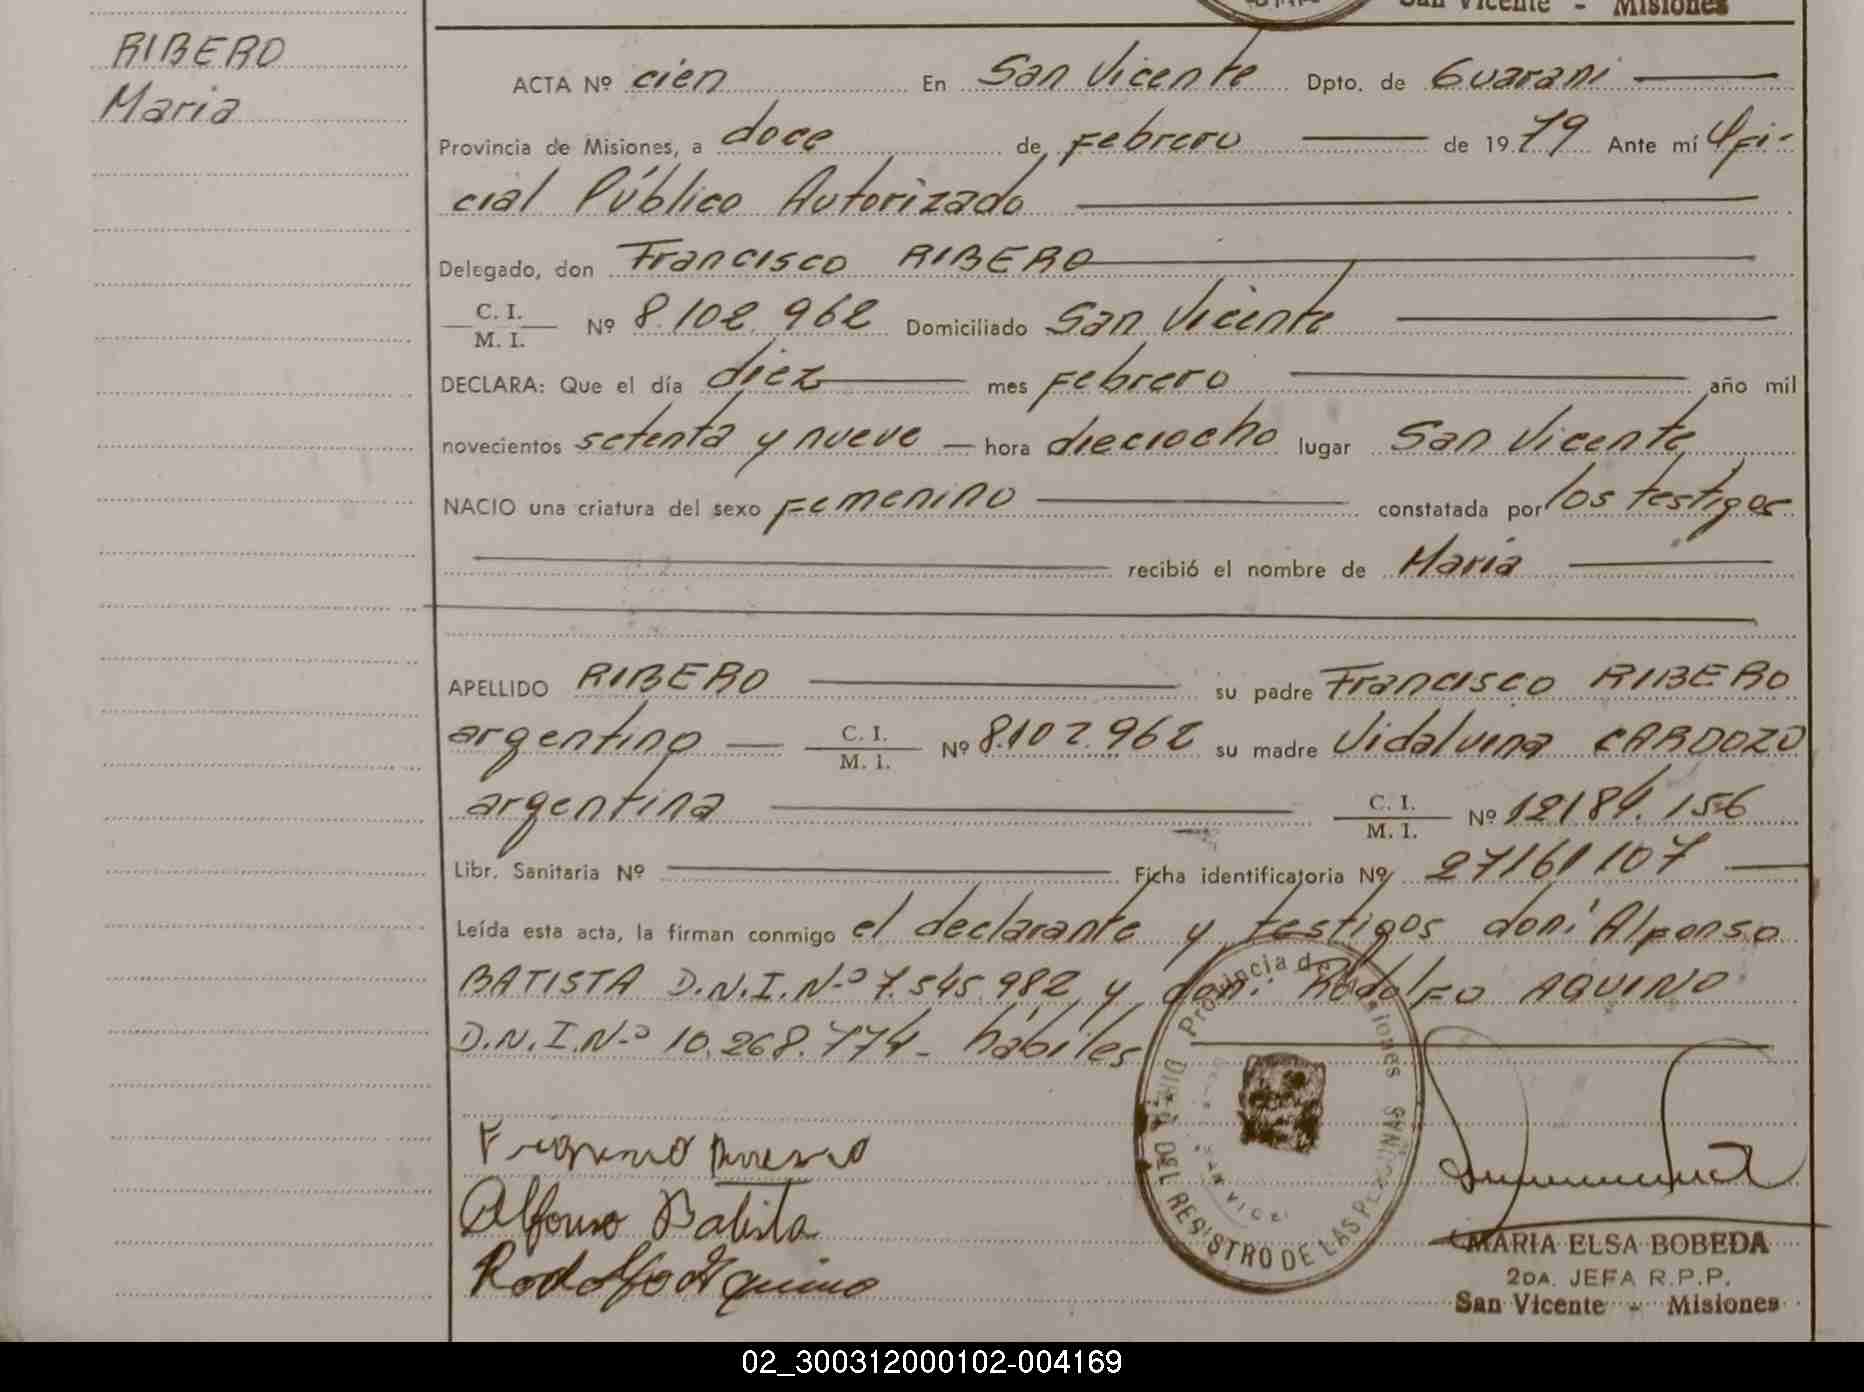 San Vicente - Misiones
RIBERO
Maria
ACTA Nº cien En San Vicente Dpto. de Guarani
Provincia de Misiones, a doce de Febrero de 1979 Ante mí Ofi-
cial Público Autorizado
Delegado, don Francisco RIBERO
C. I.
M. I. Nº 8.102.962 Domiciliado San Vicente
DECLARA: Que el día diez mes Febrero año mil
novecientos setenta y nueve - hora dieciocho lugar San Vicente
NACIO una criatura del sexo Femenino constatada por los testigos
recibió el nombre de Maria
APELLIDO RIBERO su padre Francisco RIBERO
argentino C. I.
M. I. Nº 8.102.962 su madre Vidalvina CARDOZO
argentina C. I.
M. I. Nº 12184.156
Libr. Sanitaria Nº Ficha identificatoria Nº 27161107
Leída esta acta, la firman conmigo el declarante y testigos don: Alfonso
BATISTA D.N.I.Nº 7.545.982 y don: Rodolfo AQUINO
D.N.I.Nº 10.268.774- hábiles
Provincia de Misiones
DEL REGISTRO DE LAS PERSONAS
SAN VICE
Alfonso Batista
Rodolfo Aquino
MARIA ELSA BOBEDA
2DA. JEFA R.P.P.
San Vicente - Misiones
02_300312000102-004169